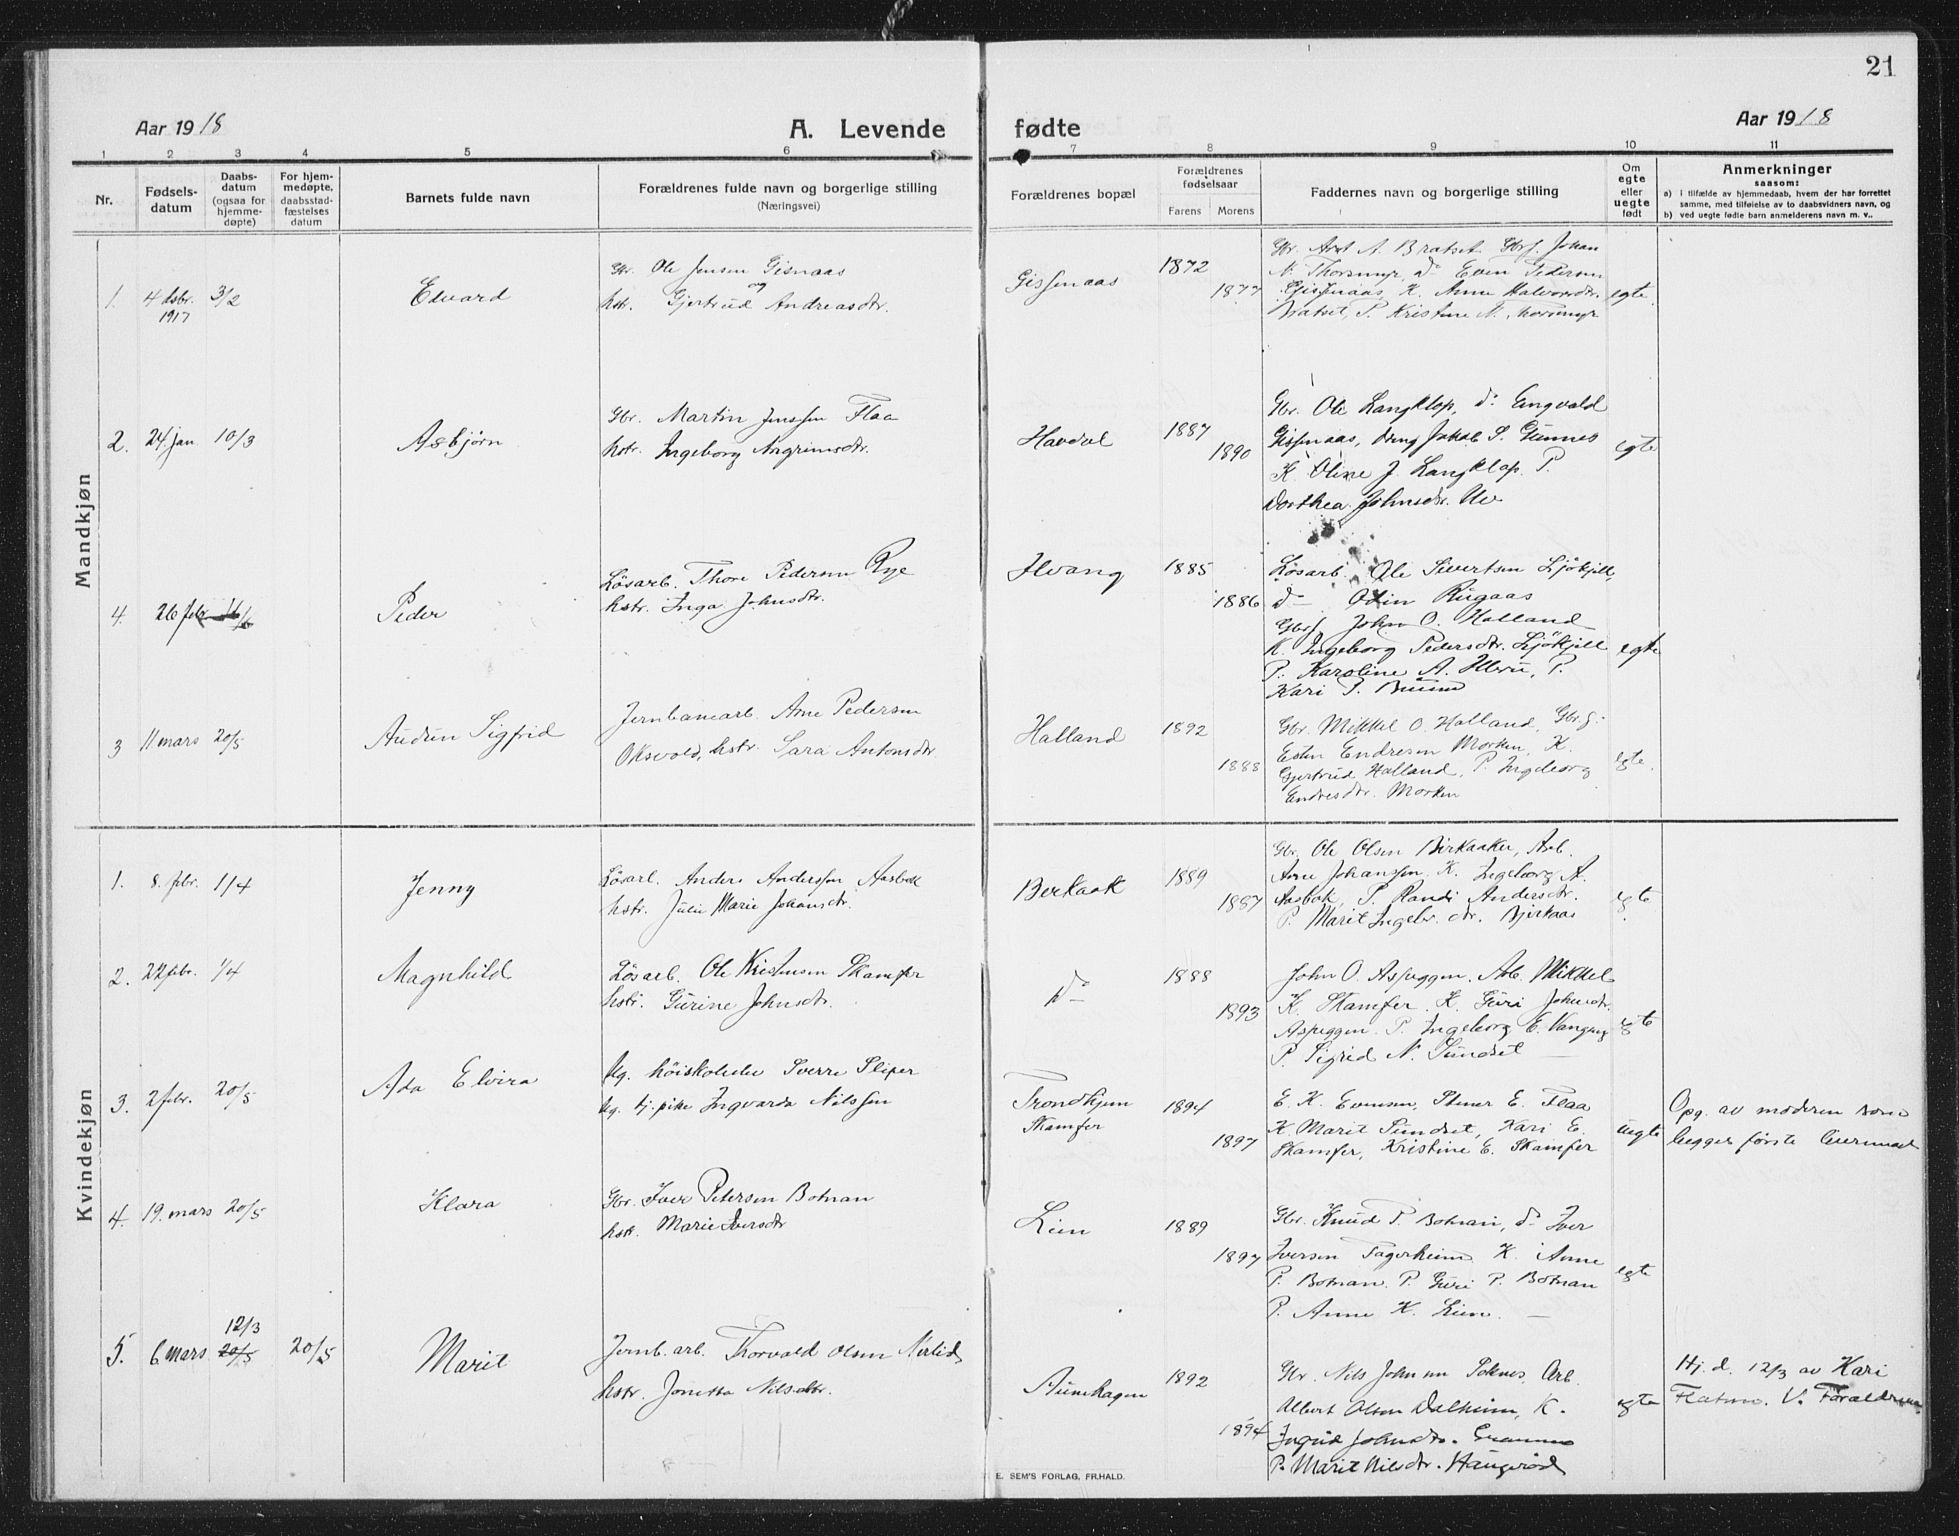 21
Aar 1918
A. Levende fødte
Aar 1918
1 2 3 4 5 6 7 8 9 10 11
Nr.
Fødsels-
datum
Daabs-
datum
(ogsaa for
hjemme-
døpte)
For hjem-
medøpte,
daabsstad-
fæstelses
datum
Barnets fulde navn
Forældrenes fulde navn og borgerlige stilling
(Næringsvei)
Forældrenes bopæl
Forældrenes
fødselsaar
Farens Morens
Faddernes navn og borgerlige stilling
Om
egte
eller
uegte
født
Anmerkninger
saasom:
a) i tilfælde av hjemmedaab, hvem der har forrettet
samme, med tilføielse av to daabsvidners navn, og
b) ved uegte fødte barn anmelderens navn m. v..
Mandkjøn
1. 4 dsbr. 1917 3/2 Edvard
Gbr. Ole Jensen Gisnaas
og
hstr. Gjertrud Andreasdtr.
Gissnaas 1872 1877
Gbr. Arnt A. Bratset. Gbrs. Johan
N. Thorsmyr, do Even Pedersen
Gissnaas, K. Anne Halvorsdtr.
Bratset, P. Kristine N. Thorsmyr
egte.
2. 24. jan 10/3 Asbjørn
Gbr. Martin Jenssen Flaa
hstr. Ingeborg Arngrimsdtr.
Havdal 1887 1890
Gbr. Ole Langklop, do Engvald
Gissnaas, dreng Jakob S. Gunnes
K. Oline J. Langklop. P.
Dorthea Johnsdtr. Uv
egte
4. 26 febr 16/6 Peder
Løsarb. Thore Pedersen Rye
hstr. Inga Johnsdtr.
Hvang 1885 1886
Løsarb. Ole Sivertsen Sjøkjill,
do Odin Rugaas
Gbrs John O. Halland
K. Ingeborg Pedersdtr. Sjøkjill
P. Karoline A. P.
Kari P.
egte
3 11 mars 20/5 Audun Sigfrid
Jernbanearb. Arne Pedersen
Oksvold, hstr. Sara Antonsdtr
Halland 1892 1888
Gbr. Mikkel O. Halland, Gbr.s.
Esten Endresen Morken, K.
Gjertrud Halland, P. Ingeborg
Endresdtr. Morken
egte.
Kvindekjøn
1. 8. febr. 1/4 Jenny
Løsarb. Anders Anderssen Aasbak
hstr. Julie Marie Johansdtr.
Berkaak 1889 1887
Gbr. Ole Olsen Birkaaker, Arb.
Arne Johanssen, K. Ingeborg A.
Aasbak, P. Randi Andersdtr.
P. Marit Ingebr.dtr. Bjerkaas
egte
2. 22 febr. 1/4 Magnhild
Løsarb. Ole Kristensen Skamfer
hstr. Gurine Johnsdtr.
do 1888 1893
John O. Aspeggen. Arb. Mikkel
K. Skamfer. K. Guri Johnsdtr.
Aspeggen. P. Ingeborg E. Vangseng
P. Sigrid N. Sundset
egte
3. 2 febr. 20/5 Ada Elvira
Ug. høiskoleelev Sverre Sliper
Ug. tj.pike Ingvarda Nilssen
Trondhjem
Skamfer
1894 1897
E. K. Evensen, Stener E. Flaa
K. Marit Sundset, Kari E.
Skamfer, Kristine E. Skamfer
uegte
Opg. av moderen som
begges første leiermaal
4. 19. mars 20/5 Klara
Gbr. Iver Petersen Botnan
hstr. Marie Iversdtr
Lien 1889 1897
Gbr. Knud P. Botnan, do Iver
Iversen Fagerheim K. Anne
P. Botnan. P. Guri P. Botnan
P. Anne K. Lien.
egte
5. 6 mars 12/3 20/5 20/5 Marit
Jernb. arb. Thorvald Olsen Nerlid
hstr. Jonetta Nilsdtr.
Aunehagen 1892 1894
Gbr. Nils Johnsen Soknes, Arb.
Albert Olsen Dalheim, K.
Ingrid Johnsdtr.
P. Marit Nilsdtr. Haugerød
egte
Hj. d. 12/3 av Kari
Flatmo. V. Forældrene.
E. SEM'S FORLAG, FR.HALD.